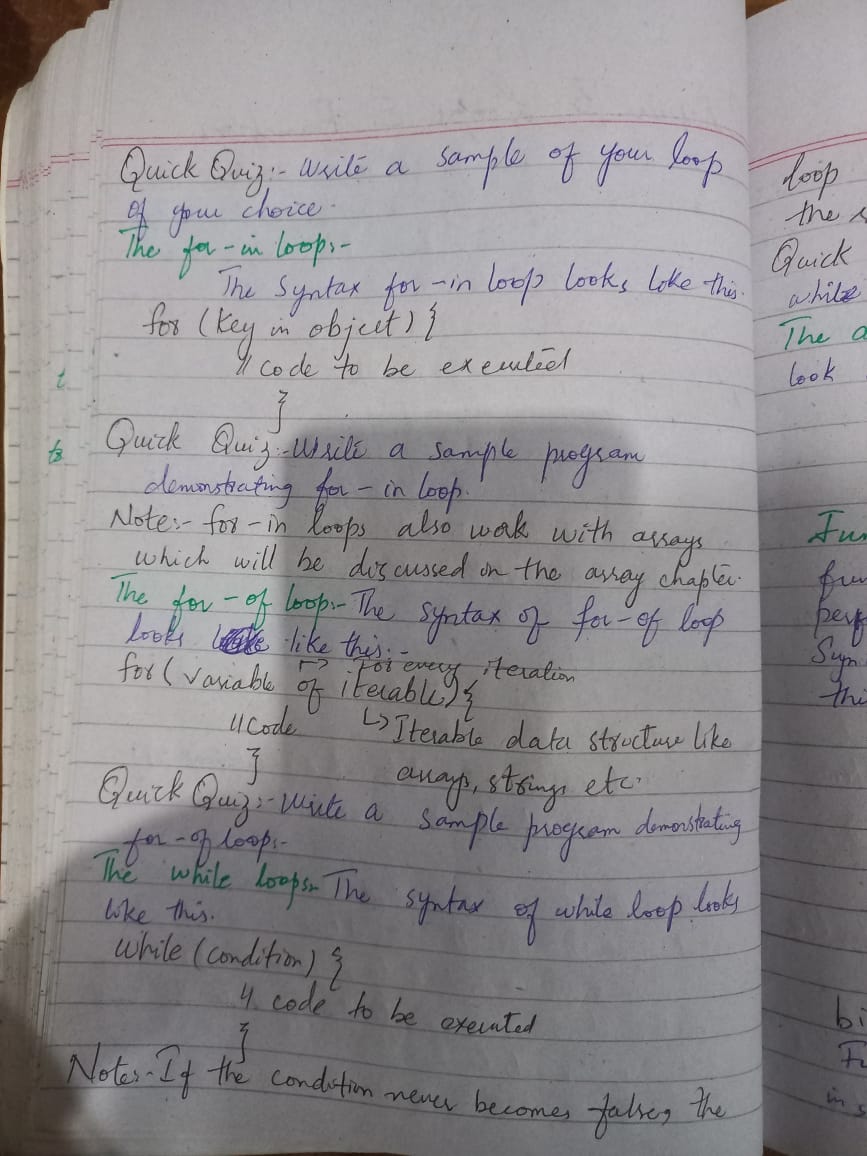 Quick Quiz:- Write a sample of your loop
of your choice.
The for-in loop:-
The Syntax for-in loop looks loke this.
for (key in object) {
// code to be executed
}
Quick Quiz:- Write a sample program
demonstrating for-in loop.
Note:- for-in loops also work with arrays
which will be discussed on the array chapter.
The for-of loop:- The syntax of for-of loop
looks like this:-
↳ For every iteration
for (variable of iterable) {
// Code ↳ Iterable data structure like
} arrays, strings etc.
Quick Quiz:- Write a sample program demonstrating
for-of loop:-
The while loop:- The syntax of while loop looks
like this.
while (condition) {
// code to be executed
}
Note:- If the condition never becomes false, the
loop
the
Quick
while
The
look